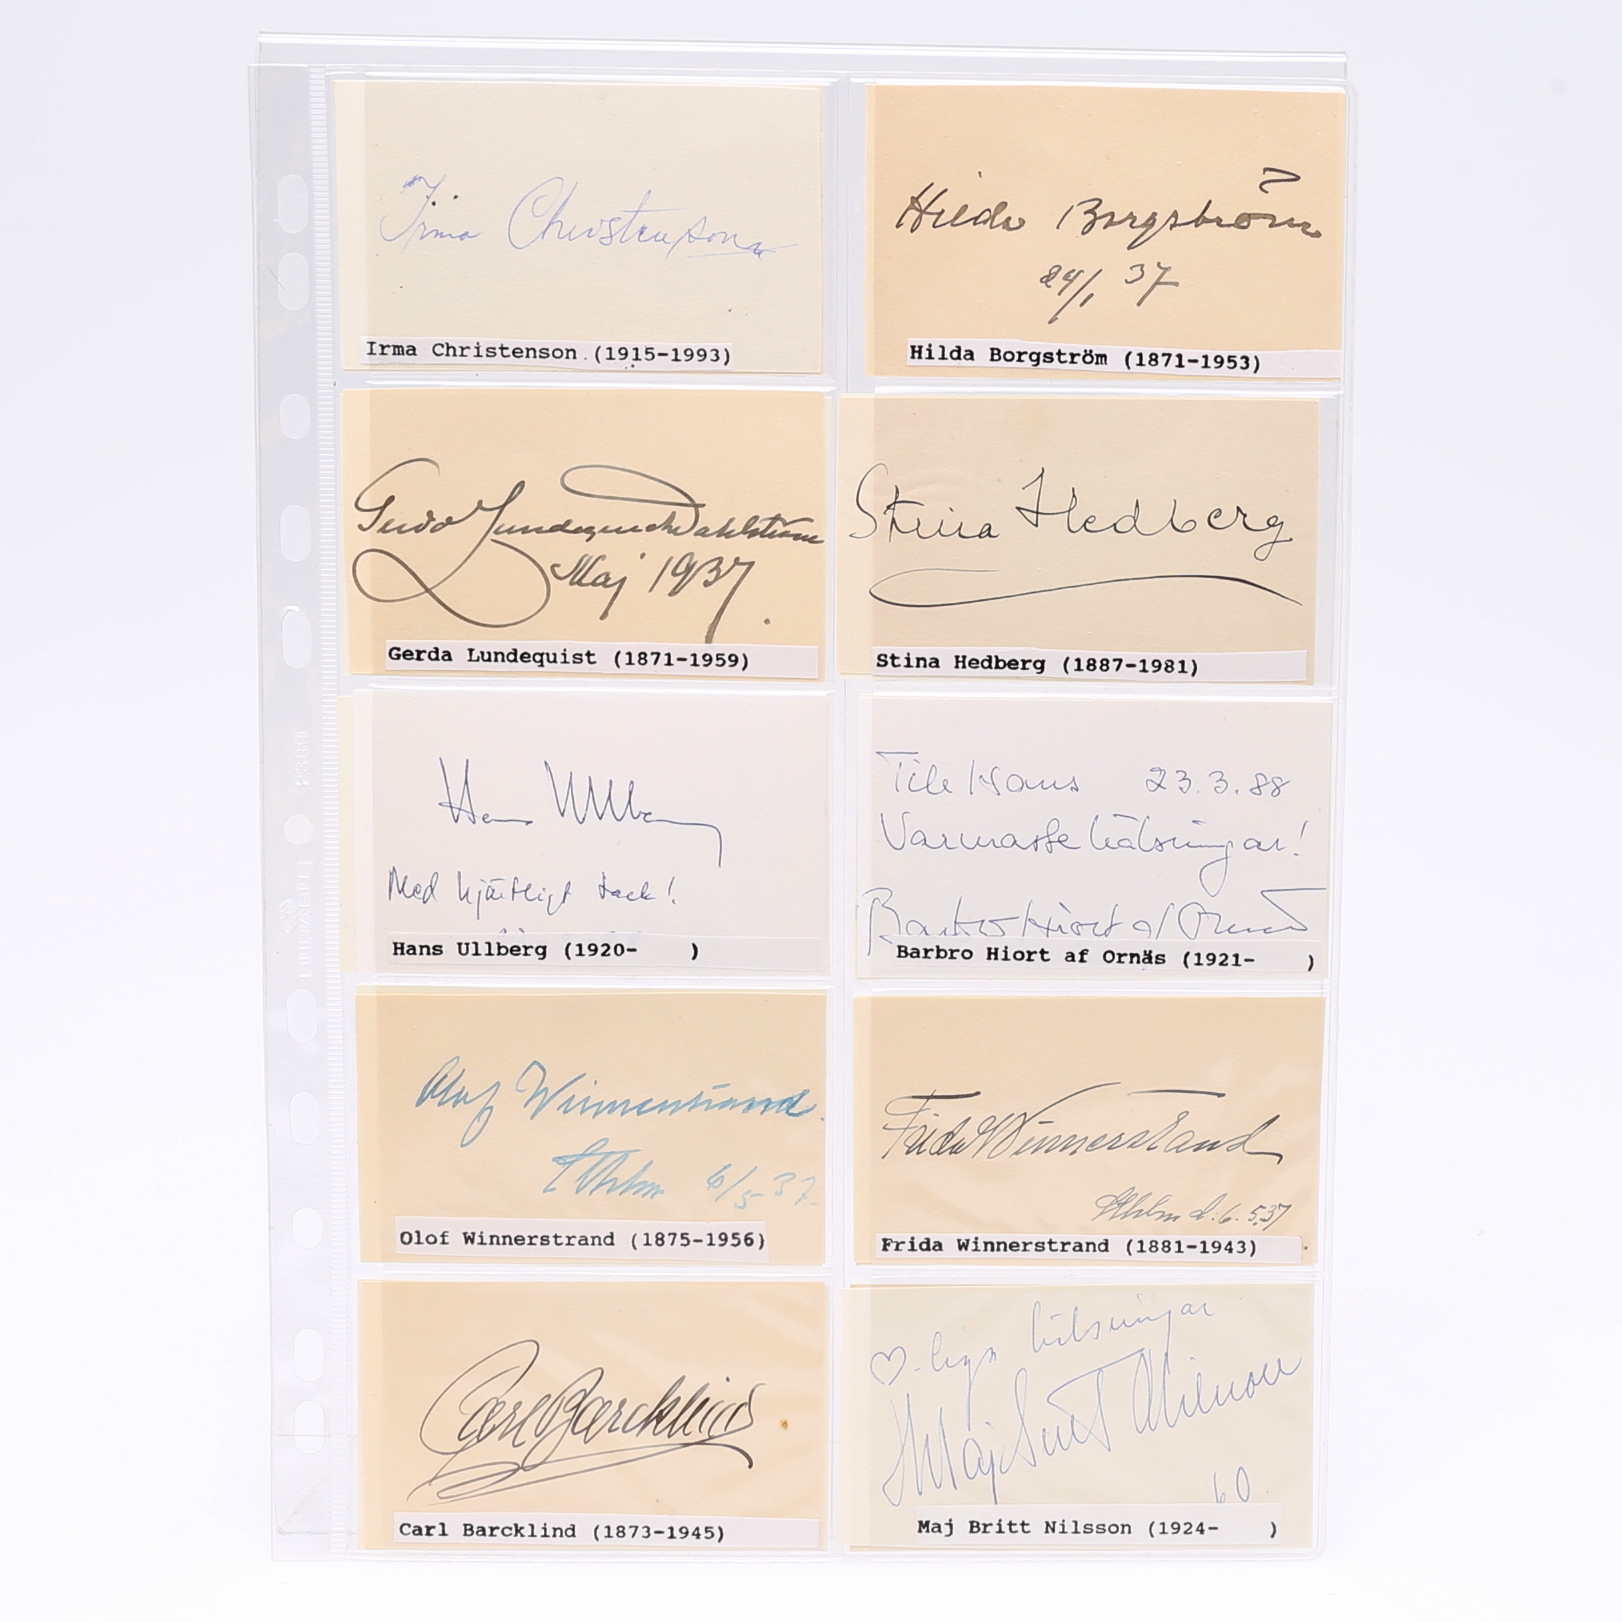 Irma Christenson
Irma Christenson (1915-1993)
Hilda Borgström
24/1 37
Hilda Borgström (1871-1953)
Gerda Lundequist Dahlström
Maj 1937.
Gerda Lundequist (1871-1959)
Stina Hedberg
Stina Hedberg (1887-1981)
Hans Ullberg
Med hjärtligt tack!
Hans Ullberg (1920-    )
Till Hans 23.3.88
Varmaste hälsningar!
Barbro Hiort af Ornäs
Barbro Hiort af Ornäs (1921-    )
Olof Winnerstrand.
Sthlm 6/5-37.
Olof Winnerstrand (1875-1956)
Frida Winnerstrand
Sthlm d. 6. 5.37
Frida Winnerstrand (1881-1943)
Carl Barcklind
Carl Barcklind (1873-1945)
♡-liga hälsningar
Maj Britt Nilsson
60.
Maj Britt Nilsson (1924-    )